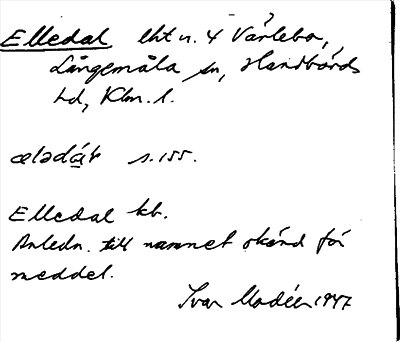 Elledal lht n. 4 Värlebo,
Långemåla sn, Handbörds
hd, Klm. l.
s. 155.
Elledal kb.
Anledn. till namnet okänd för
meddel.
Ivar Modéer 1947